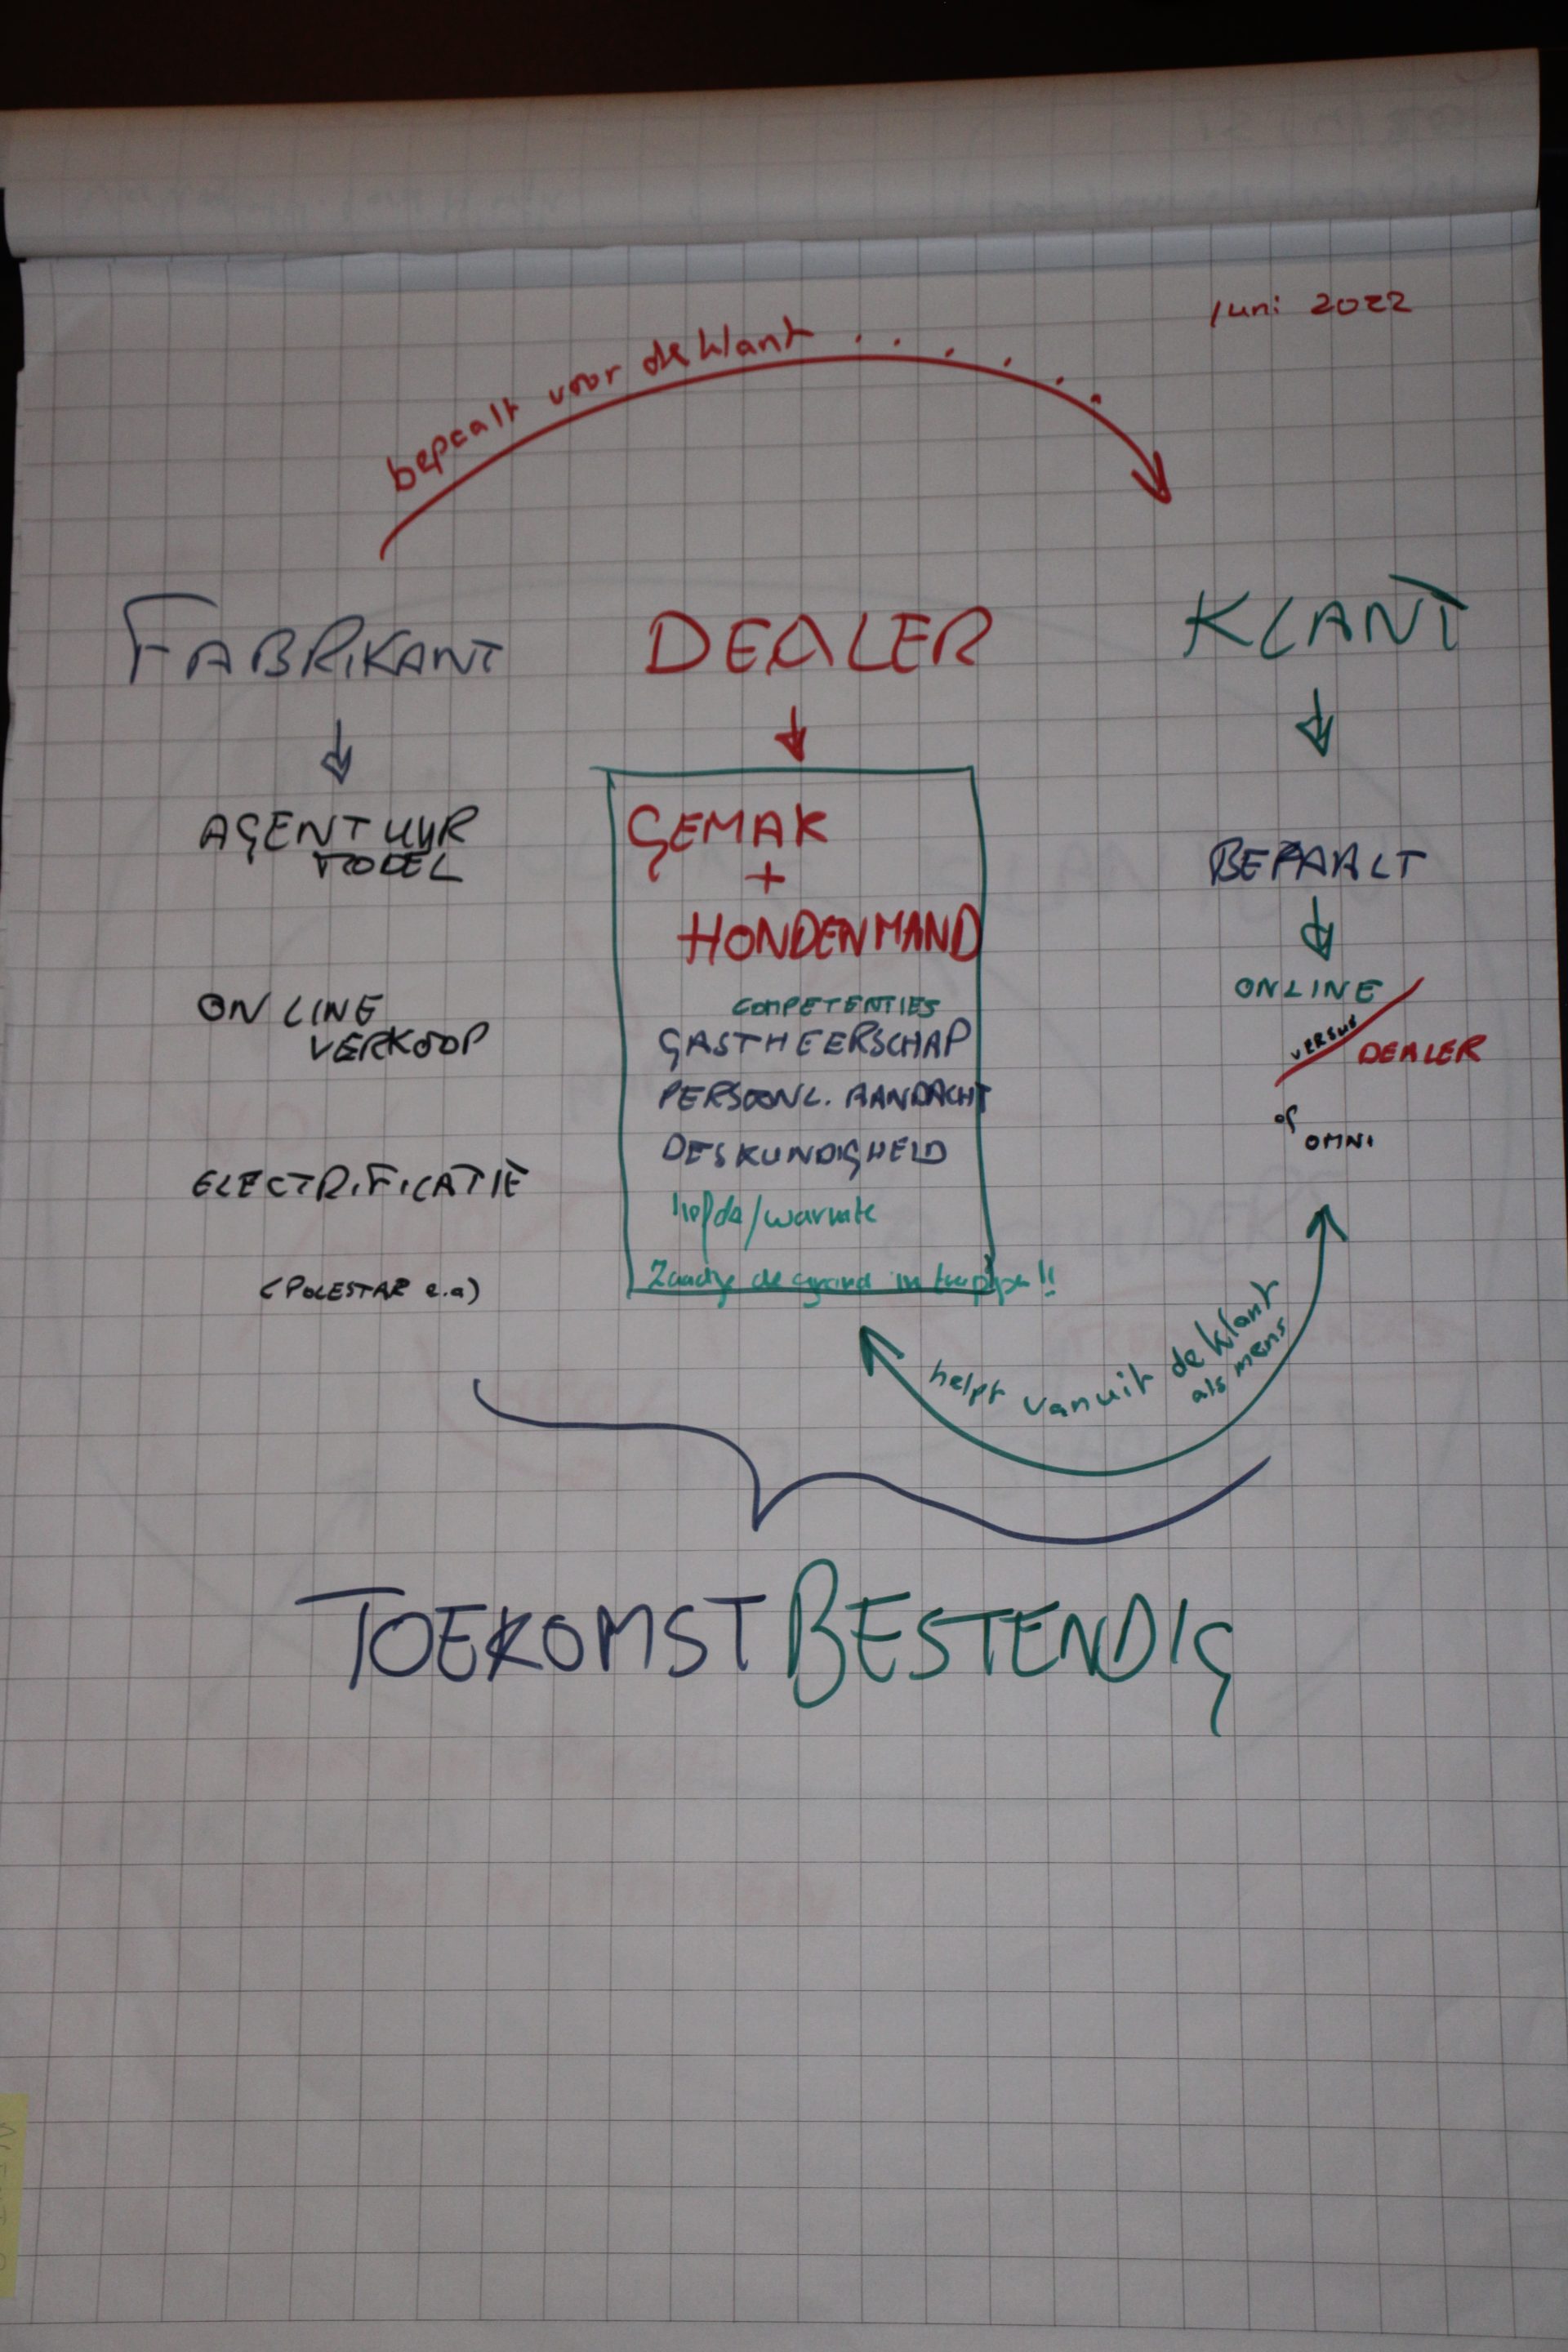 juni 2022
bepaalt voor de klant . . . . . .
FABRIKANT
AGENTUUR
MODEL
ONLINE
VERKOOP
ELECTRIFICATIE
(POLESTAR e.a)
DEALER
GEMAK
+
HONDENMAND
COMPETENTIES
GASTHEERSCHAP
PERSOONL. AANDACHT
DESKUNDIGHEID
liefde/warmte
de grond in !!
KLANT
BEPAALT
ONLINE
VERSUS
DEALER
of
OMNI
helpt vanuit de klant
als mens
TOEKOMSTBESTENDIG